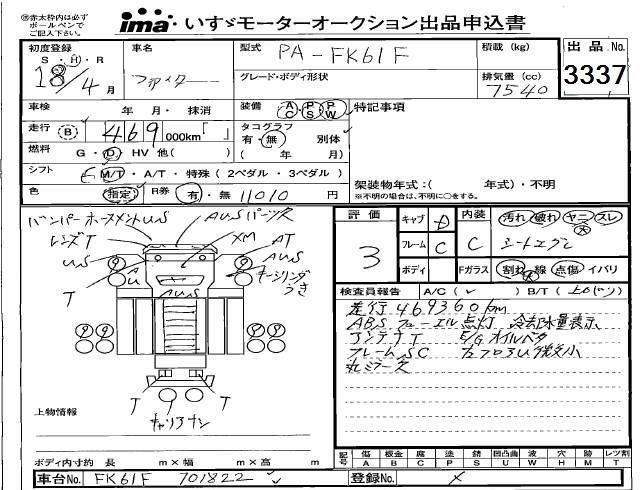 ※赤太枠内は必ず
ボールペンで
ご記入下さい。
ima いすゞモーターオークション出品申込書
初度登録 S・H・R 18/4月
車名 ファイター
型式 PA-FK61F
グレード・ボディ形状
積載(kg)
排気量(cc) 7540
出品No. 3337
車検 年 月・抹消
走行 B 469,000km「 」
燃料 G・D・HV 他( )
シフト M/T・A/T・特殊(2ペダル・3ペダル)
色 指定 R券 有・無 11010円
装備 AC PS PW
タコグラフ 有・無 別体
( 年 月)
特記事項
架装物年式:( 年式)・不明
※不明の場合は、不明に○をする。
バンパーホースメントUS AUSパーツ欠
レンズT XM AT
US AU US
T AUS
T T
T T
キャリアナシ
上物情報
ボディ内寸約 長 m×幅 m×高 m
評価 3
キャブ D
フレーム C
ボディ
内装 C
Fガラス
汚れ 破れ ヤニ スレ 大
シートコゲ
割れ 大 線 点傷 イバリ
検査員報告 A/C(✓) B/T(上のバリ)
走行469360km
ABS フューエル点灯 冷却水量表示
アンテナT E/Gオイルベタ
フレームSC
丸ミラー欠
記号 傷A 板金B 腐C 塗P 錆S 凹凸曲U 波W 穴H 跡M レツ割T
車台No. FK61F 701822
登録No. ×